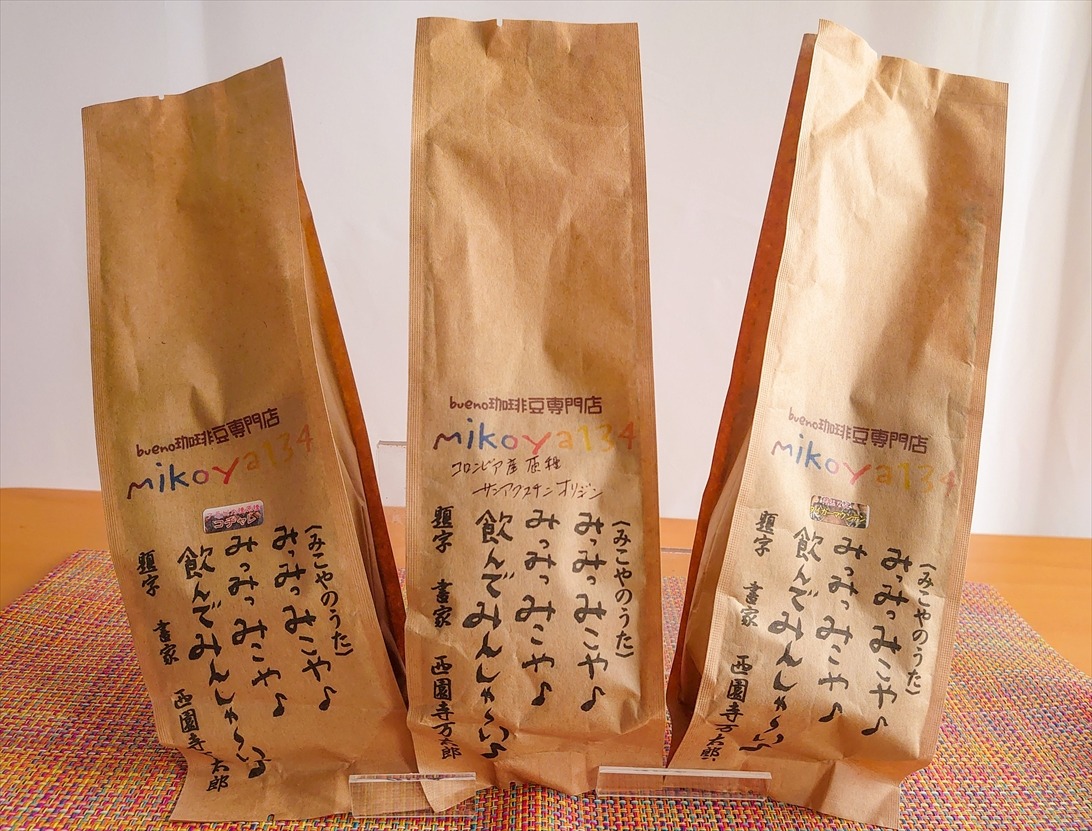 bueno珈琲豆専門店
mikoya134
コチャレ
(みこやのうた)
みっみっみこや♪
みっみっみこや♪
飲んでみんしゃ〜い♪
題字 書家 西園寺万太郎
bueno珈琲豆専門店
mikoya134
コロンビア産原種
サンアグスチンオリジン
(みこやのうた)
みっみっみこや♪
みっみっみこや♪
飲んでみんしゃ〜い♪
題字 書家 西園寺万太郎
bueno珈琲豆専門店
mikoya134
ガーマウンテン
(みこやのうた)
みっみっみこや♪
みっみっみこや♪
飲んでみんしゃ〜い♪
題字 書家 西園寺万太郎